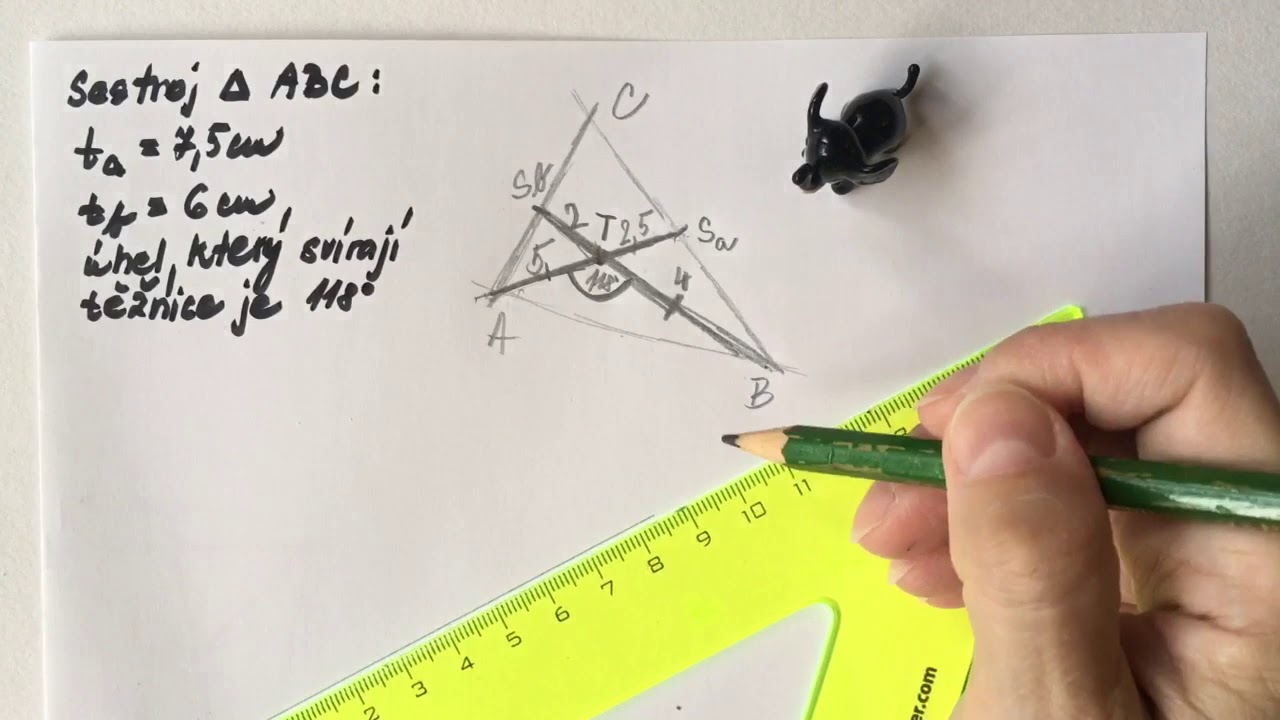 Sestroj Δ ABC:
ta = 7,5cm
tb = 6cm
úhel, který svírají
těžnice je 118°
C
Sb
2 T 2,5 Sa
5 118° 4
A
B
2 3 4 5 6 7 8 9 10 11
er.com